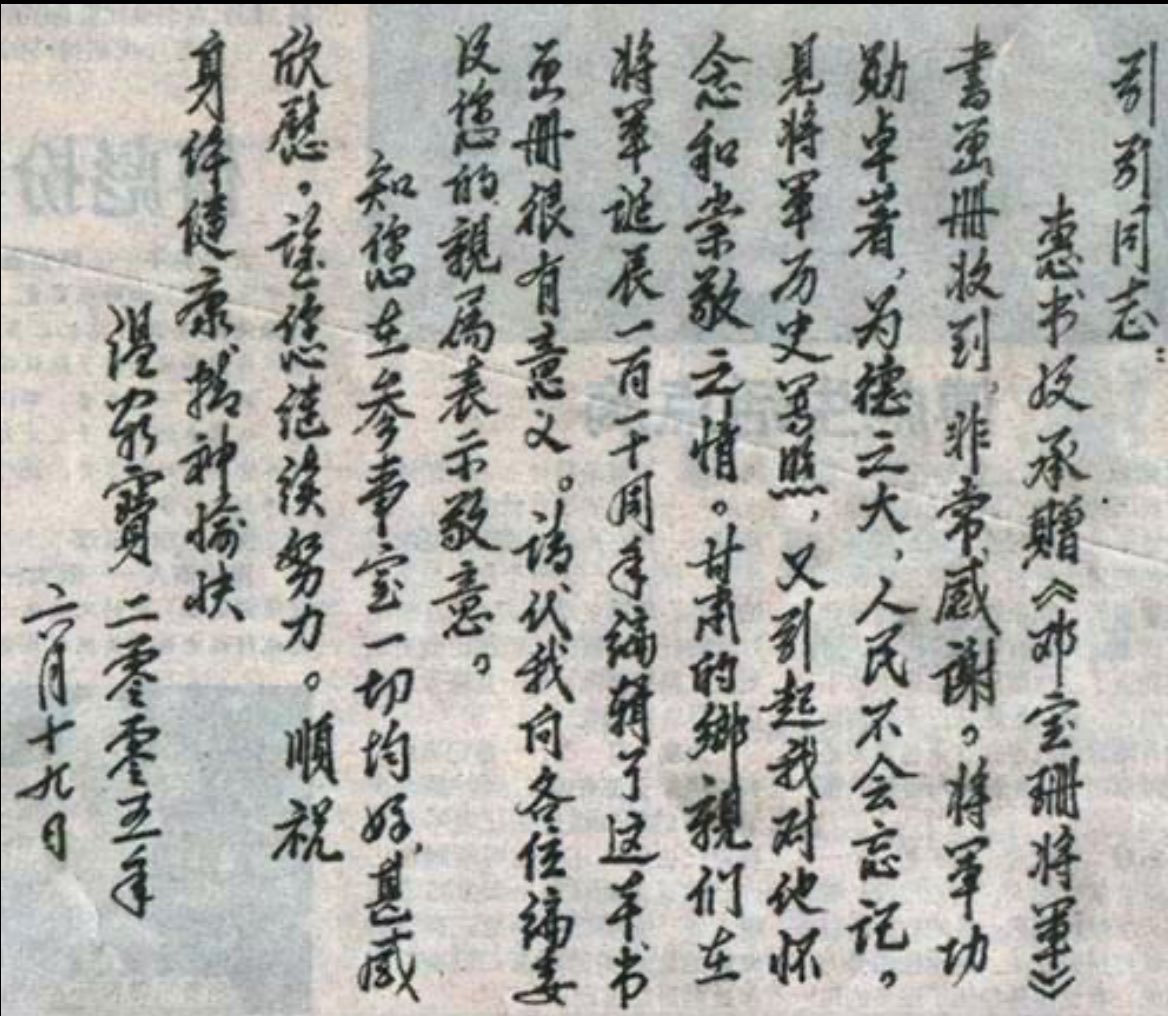 引引同志：
惠书及承赠《邓宝珊将軍》
書画册收到，非常感謝。将軍功
勋卓著，为德之大，人民不会忘记。
見将軍历史写照，又引起我对他怀
念和崇敬之情。甘肃的鄉親们在
将軍诞辰一百一十周年编辑了这本书
画册很有意义。请代我向各位编委
及您的親属表示敬意。
知您在参事室一切均好，甚感
欣慰。望您继续努力。順祝
身体健康，精神愉快
温家寶 二零零五年
六月十九日